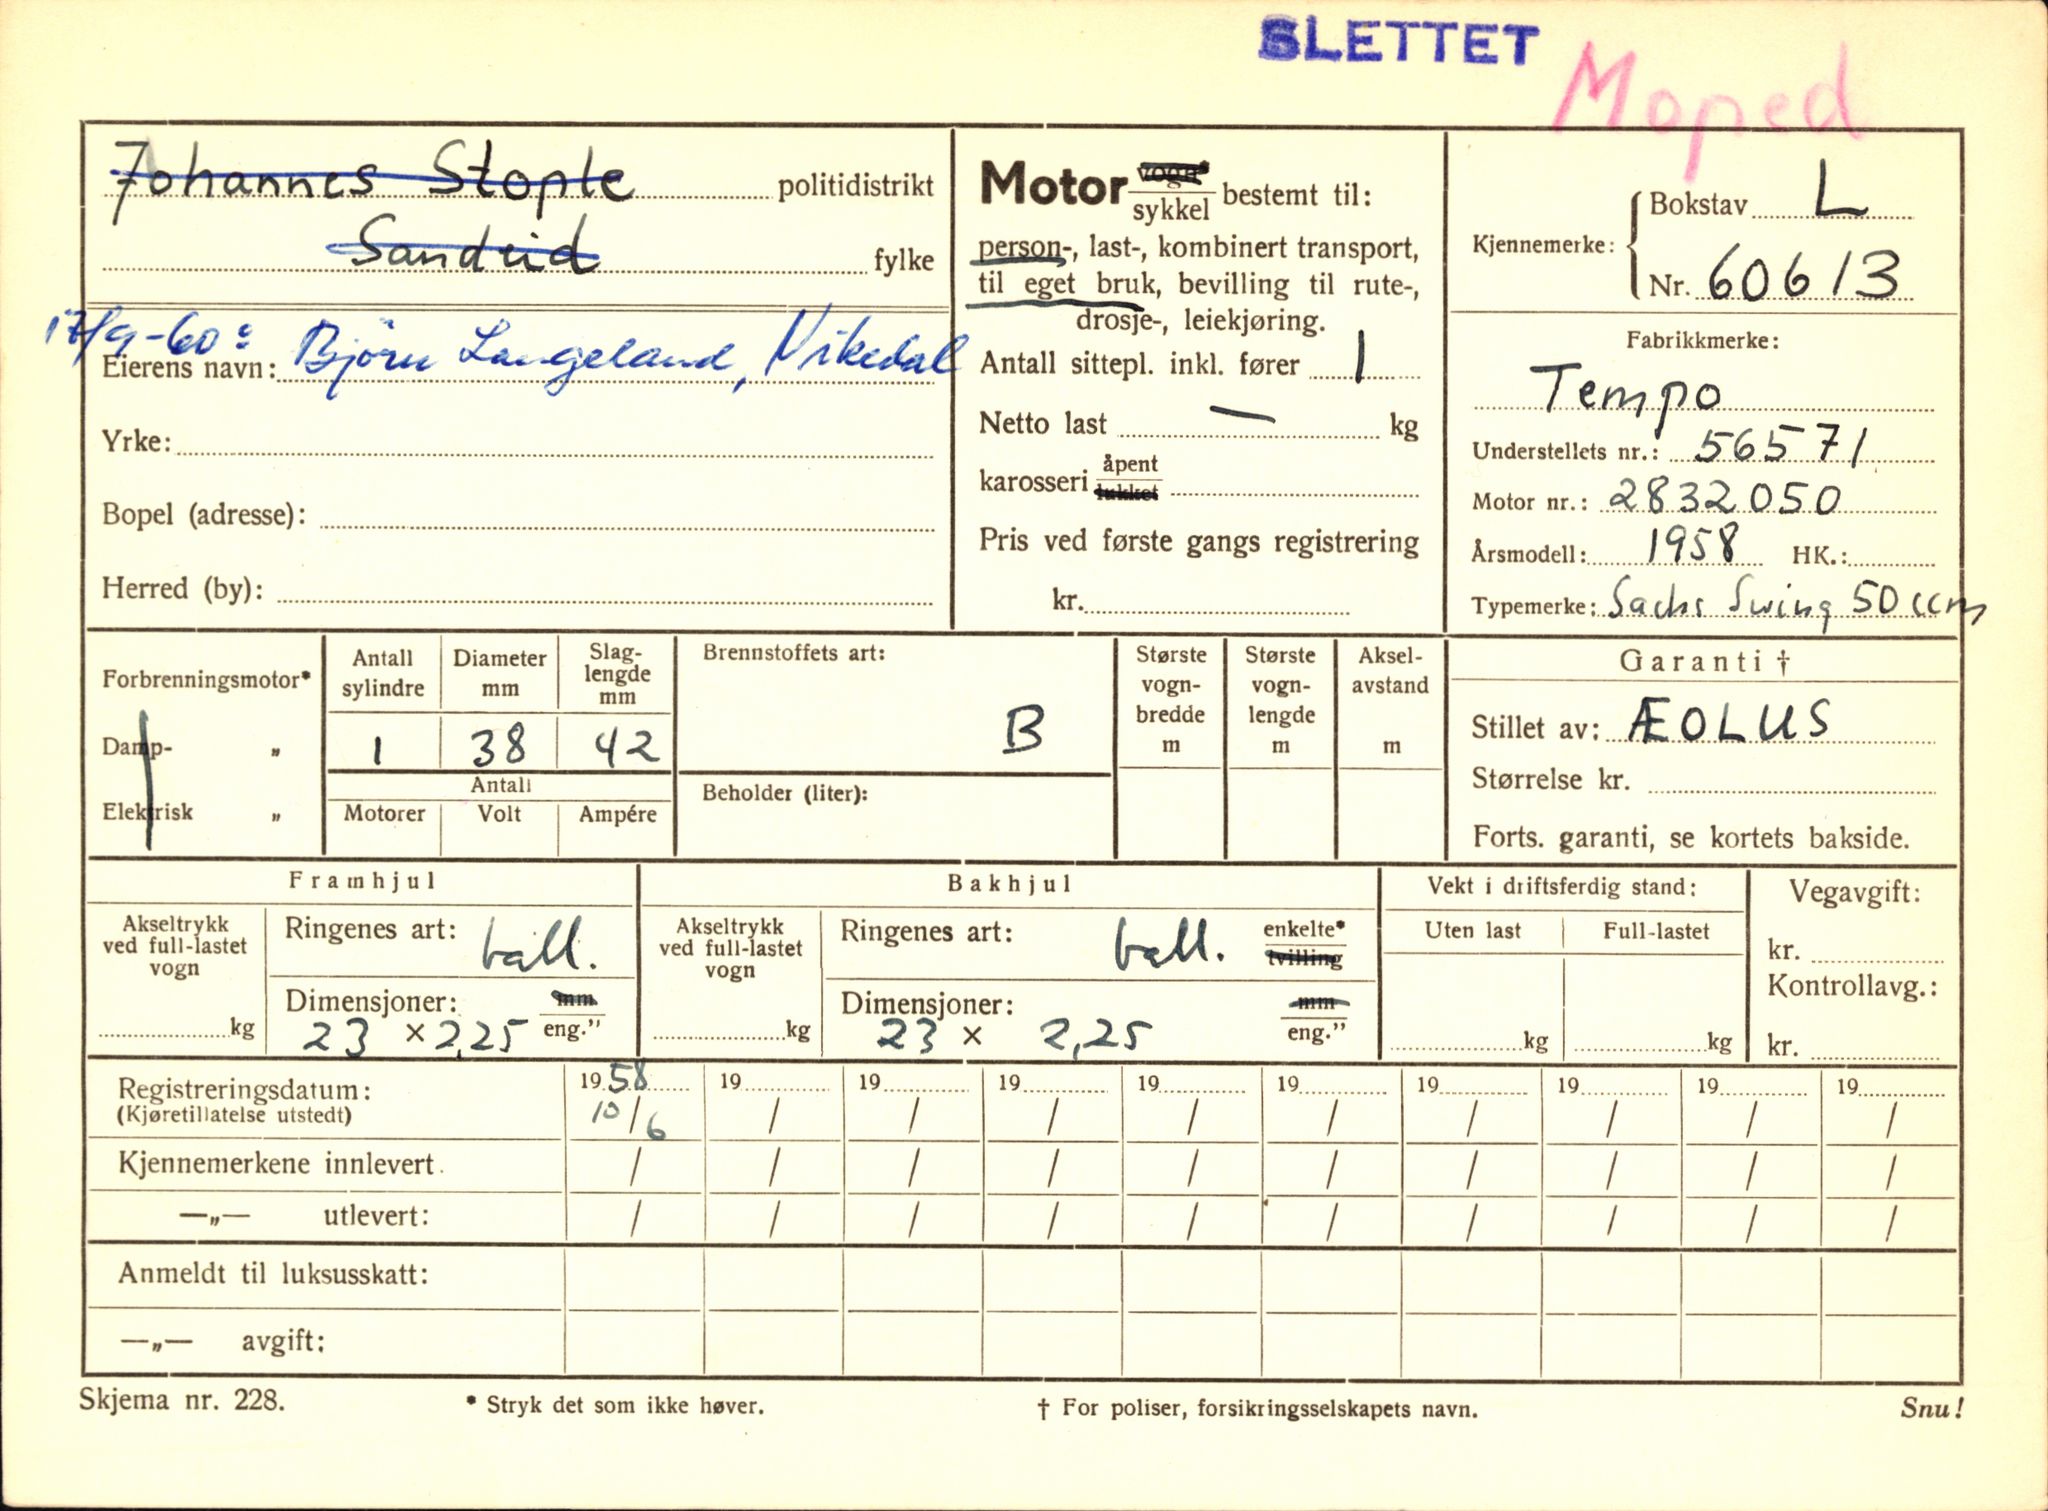 SLETTET
Moped
Johannes Stople politidistrikt
Sandeid fylke
17/9-60: Bjørn Langeland, Vikedal
Eierens navn:
Yrke:
Bopel (adresse):
Herred (by):
Motor vogn* sykkel bestemt til:
person-, last-, kombinert transport,
til eget bruk, bevilling til rute-,
drosje-, leiekjøring.
Antall sittepl. inkl. fører 1
Netto last — kg
karosseri åpent lukket
Pris ved første gangs registrering
kr.
Kjennemerke: Bokstav L
Nr. 60613
Fabrikkmerke:
Tempo
Understellets nr.: 56571
Motor nr.: 2832050
Årsmodell: 1958 HK.:
Typemerke: Sachs Swing 50 ccm
Forbrenningsmotor*
Damp- „
Elektrisk „
Antall sylindre
Diameter mm
Slag-lengde mm
1 38 42
Antall
Motorer Volt Ampére
Brennstoffets art:
B
Beholder (liter):
Største vogn-bredde m
Største vogn-lengde m
Aksel-avstand m
Garanti †
Stillet av: ÆOLUS
Størrelse kr.
Forts. garanti, se kortets bakside.
Framhjul
Akseltrykk ved full-lastet vogn
kg
Ringenes art: ball.
Dimensjoner: mm eng."
23 × 2,25
Bakhjul
Akseltrykk ved full-lastet vogn
kg
Ringenes art: ball. enkelte* tvilling
Dimensjoner: mm eng."
23 × 2,25
Vekt i driftsferdig stand:
Uten last Full-lastet
kg kg
Vegavgift:
kr.
Kontrollavg.:
kr.
Registreringsdatum: 1958 19 19 19 19 19 19 19 19 19
(Kjøretillatelse utstedt) 10/6 / / / / / / / / /
Kjennemerkene innlevert / / / / / / / / / /
—„— utlevert: / / / / / / / / / /
Anmeldt til luksusskatt:
—„— avgift:
Skjema nr. 228. * Stryk det som ikke høver. † For poliser, forsikringsselskapets navn. Snu!